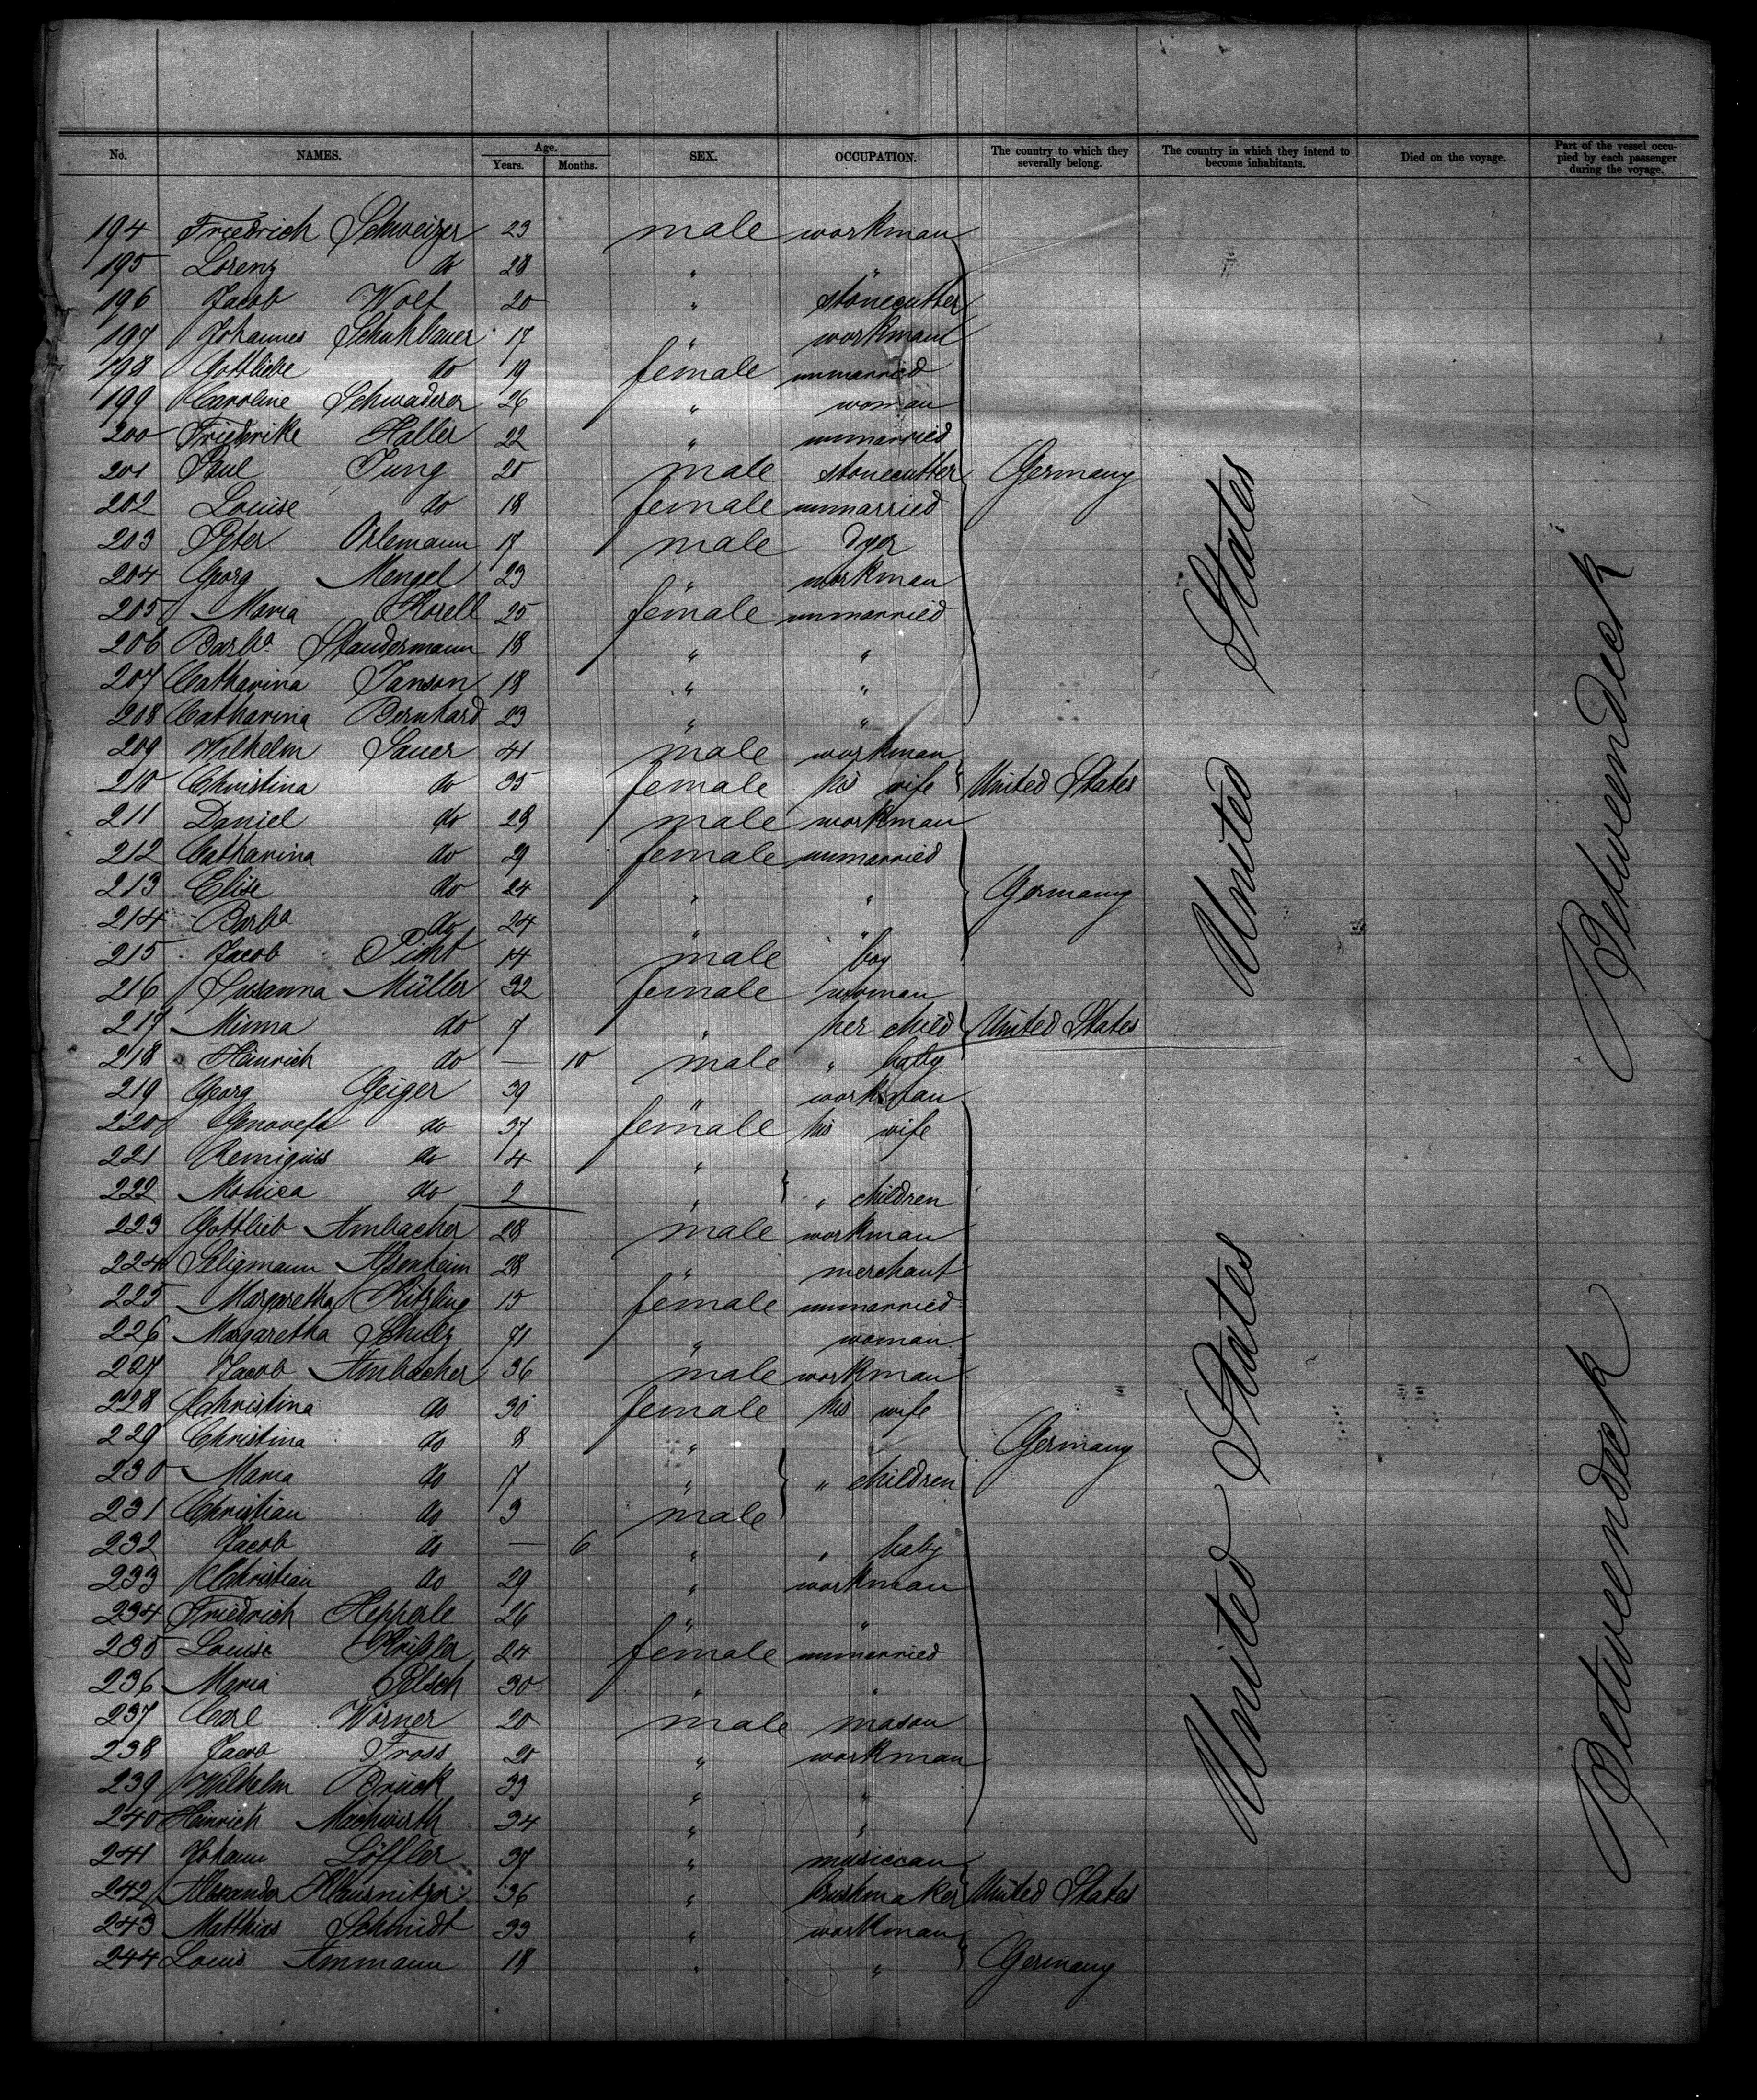 No. NAMES. Age. Years. Months. SEX. OCCUPATION. The country to which they severally belong. The country in which they intend to become inhabitants. Died on the voyage. Part of the vessel occupied by each passenger during the voyage.
194 Friedrich Schweizer 23 male workman
195 Lorenz do 28 " "
196 Jacob Wolf 20 " stonecutter
197 Johannes Schuhbauer 17 " workman
198 Gottliebe do 19 female unmarried
199 Caroline Schwaderer 26 " woman
200 Friederike Haller 22 " unmarried
201 Paul Jung 20 male stonecutter Germany
202 Louise do 18 female unmarried
203 Peter Orlemann 17 male dyer
204 Georg Mengel 23 " workman
205 Maria 25 female unmarried
206 Barba Staudermann 18 " "
207 Catharina Janson 18 " "
208 Catharina Bernhard 23 " "
209 Wilhelm Sauer 41 male workman
210 Christina do 35 female his wife United States
211 Daniel do 28 male workman
212 Catharina do 29 female unmarried
213 Elise do 24 " " Germany
214 Barba do 24 " "
215 Jacob 14 male boy
216 Susanna Müller 32 female woman
217 Minna do 7 " her child United States
218 Heinrich do — 10 male " baby
219 Georg Geiger 39 " workman
220 Genovefa do 37 female his wife
221 Remigius do 4 "
222 Monica do 2 " " children
223 Gottlieb Ambacher 28 male workman
224 Seligmann 28 " merchant
225 Margaretha Kitzling 15 female unmarried
226 Margaretha Schulz 71 " woman
227 Jacob Ambacher 36 male workman
228 Christina do 30 female his wife
229 Christina do 8 " Germany
230 Maria do 7 " " children
231 Christian do 3 male
232 Jacob do — 6 " " baby
233 Christian do 29 " workman
234 Friedrich Hepperle 26 " "
235 Louise 24 female unmarried
236 Maria 30 " "
237 Carl Wörner 20 male mason
238 Jacob Fross 20 " workman
239 Wilhelm Druck 33 " "
240 Heinrich Machwirth 34 " "
241 Johann Löffler 37 " musician
242 Alexander Klausnitzer 36 " brushmaker United States
243 Matthias Schmidt 33 " workman
244 Louis Ammann 18 " " Germany
United States
United States
Betweendeck
Betweendeck